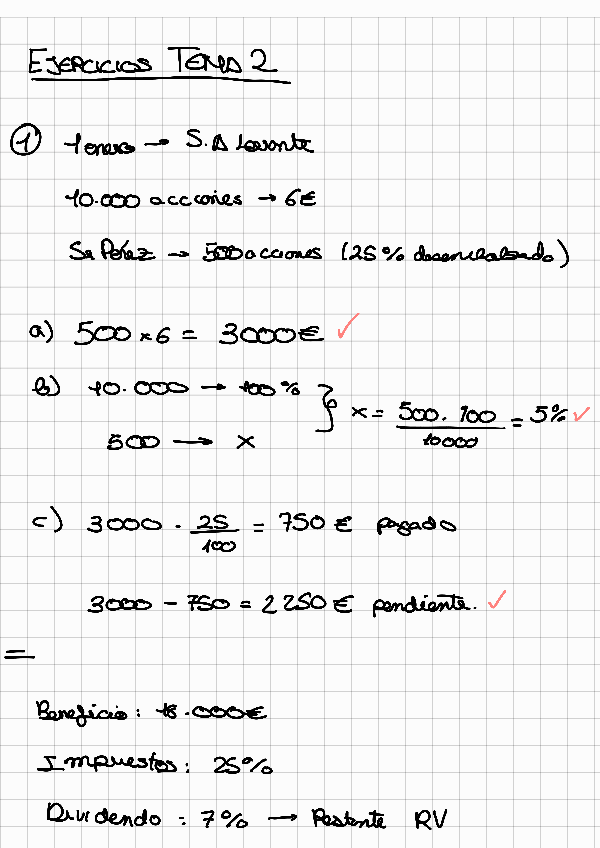 EJERCICIOS TEMA 2
① 1 enero → S.A Levante
10.000 acciones → 6€
Sr Pérez → 500 acciones (25% desembolsado)
a) 500 x 6 = 3000€ ✓
b) 10.000 → 100%
500 → x } x = 500 · 100 / 10000 = 5% ✓
c) 3000 · 25/100 = 750€ pagado
3000 - 750 = 2250€ pendiente. ✓
=
Beneficio: 18.000€
Impuestos: 25%
Dividendo: 7% → Restante RV